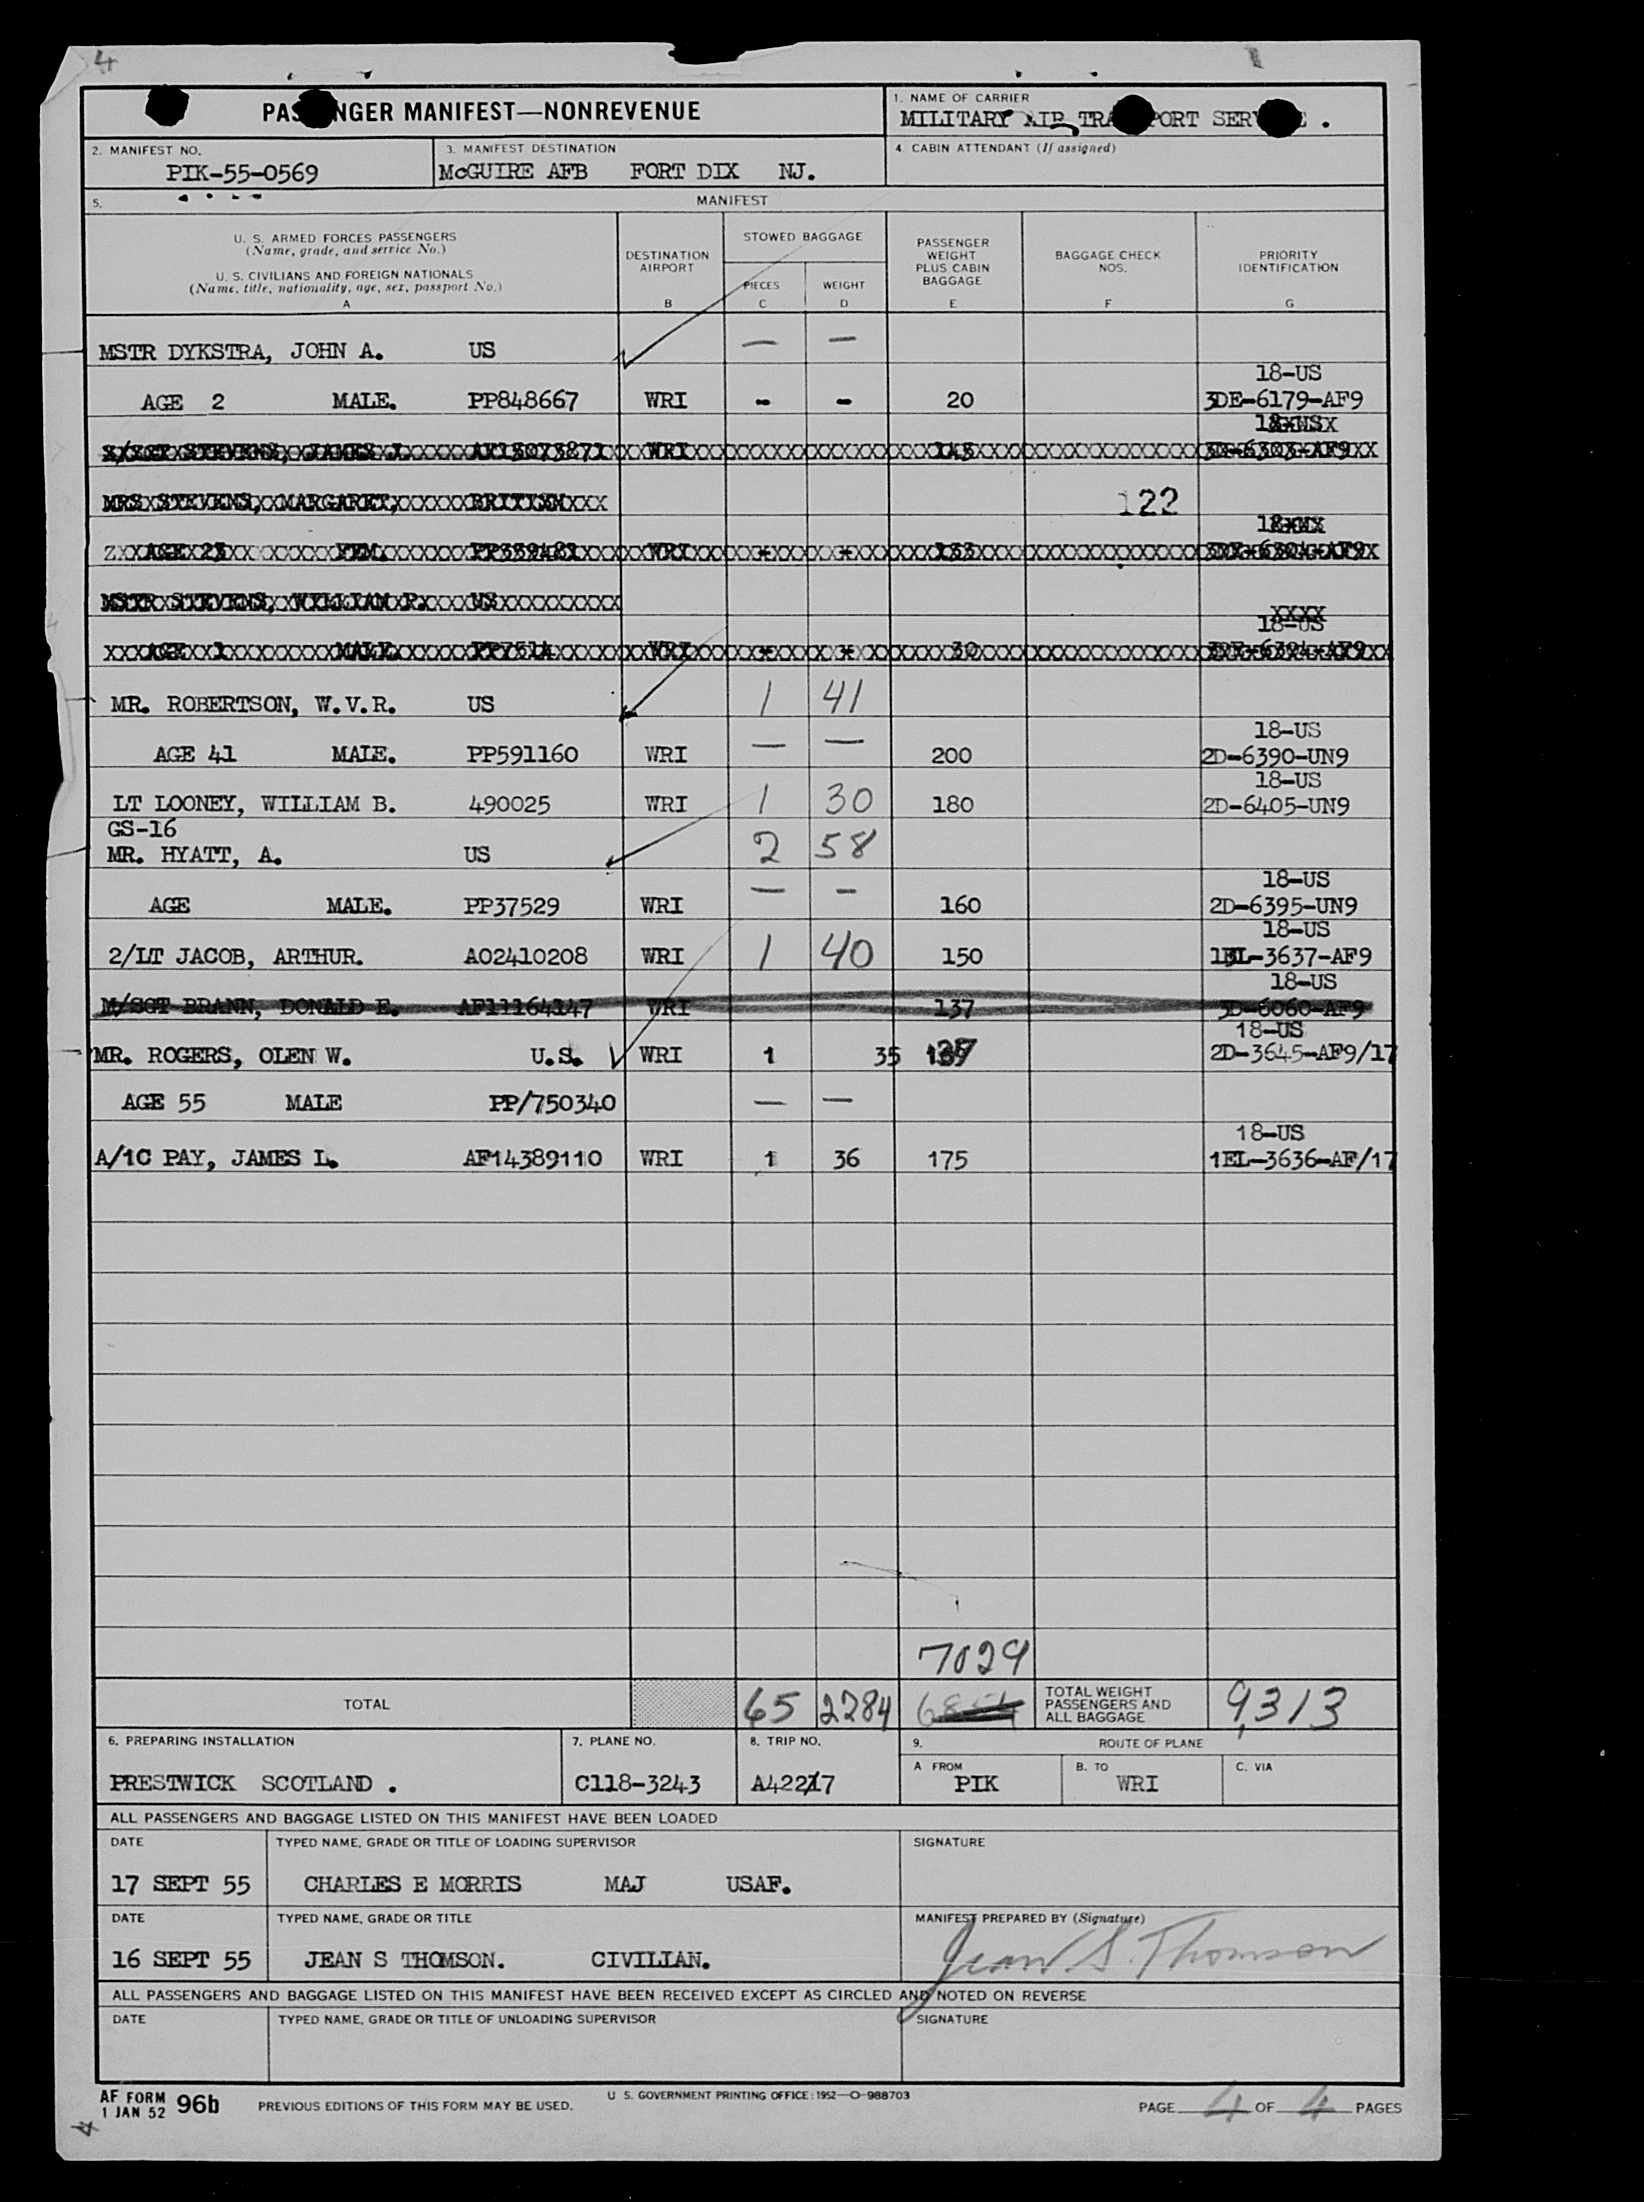 4
PASSENGER MANIFEST—NONREVENUE
1. NAME OF CARRIER
MILITARY AIR TRANSPORT SERVICE .
2. MANIFEST NO.
PIK-55-0569
3. MANIFEST DESTINATION
McGUIRE AFB FORT DIX NJ.
4. CABIN ATTENDANT (If assigned)
5. MANIFEST
U. S. ARMED FORCES PASSENGERS
(Name, grade, and service No.)
U. S. CIVILIANS AND FOREIGN NATIONALS
(Name, title, nationality, age, sex, passport No.)
A
DESTINATION
AIRPORT
B
STOWED BAGGAGE
PIECES
C
WEIGHT
D
PASSENGER
WEIGHT
PLUS CABIN
BAGGAGE
E
BAGGAGE CHECK
NOS.
F
PRIORITY
IDENTIFICATION
G
MSTR DYKSTRA, JOHN A. US — —
18-US
AGE 2 MALE. PP848667 WRI - - 20 3DE-6179-AF9
18-US
S/SGT STEVENS, JAMES AF15073871 WRI 145 3D-6303-AF9
MRS STEVENS, MARGARET, BRITISH
122
AGE 23 FEM. PP359481 WRI - - 133 3DE-6304-AF9
MSTR STEVENS, WILLIAM P. US
18-US
AGE 1 MALE. PP7514 WRI - - 30
MR. ROBERTSON, W.V.R. US 1 41
18-US
AGE 41 MALE. PP591160 WRI — — 200 2D-6390-UN9
18-US
LT LOONEY, WILLIAM B. 490025 WRI 1 30 180 2D-6405-UN9
GS-16
MR. HYATT, A. US 2 58
18-US
AGE MALE. PP37529 WRI — — 160 2D-6395-UN9
18-US
2/LT JACOB, ARTHUR. AO2410208 WRI 1 40 150 1EL-3637-AF9
18-US
M/SGT BRANN, DONALD E. AF11164147 WRI 137 3D-6060-AF9
18-US
MR. ROGERS, OLEN W. U.S. WRI 1 35 2D-3645-AF9/17
AGE 55 MALE PP/750340 — —
18-US
A/1C PAY, JAMES L. AF14389110 WRI 1 36 175 1EL-3636-AF/17
7029
TOTAL 65 2284
TOTAL WEIGHT
PASSENGERS AND
ALL BAGGAGE
9,313
6. PREPARING INSTALLATION
PRESTWICK SCOTLAND .
7. PLANE NO.
C118-3243
8. TRIP NO.
A42217
9. ROUTE OF PLANE
A FROM
PIK
B. TO
WRI
C. VIA
ALL PASSENGERS AND BAGGAGE LISTED ON THIS MANIFEST HAVE BEEN LOADED
DATE
17 SEPT 55
TYPED NAME, GRADE OR TITLE OF LOADING SUPERVISOR
CHARLES E MORRIS MAJ USAF.
SIGNATURE
DATE
16 SEPT 55
TYPED NAME, GRADE OR TITLE
JEAN S THOMSON. CIVILIAN.
MANIFEST PREPARED BY (Signature)
Jean S. Thomson
ALL PASSENGERS AND BAGGAGE LISTED ON THIS MANIFEST HAVE BEEN RECEIVED EXCEPT AS CIRCLED AND NOTED ON REVERSE
DATE
TYPED NAME, GRADE OR TITLE OF UNLOADING SUPERVISOR
SIGNATURE
AF FORM 96b
1 JAN 52
PREVIOUS EDITIONS OF THIS FORM MAY BE USED.
U S. GOVERNMENT PRINTING OFFICE: 1952—O-988703
PAGE 4 OF 4 PAGES
4